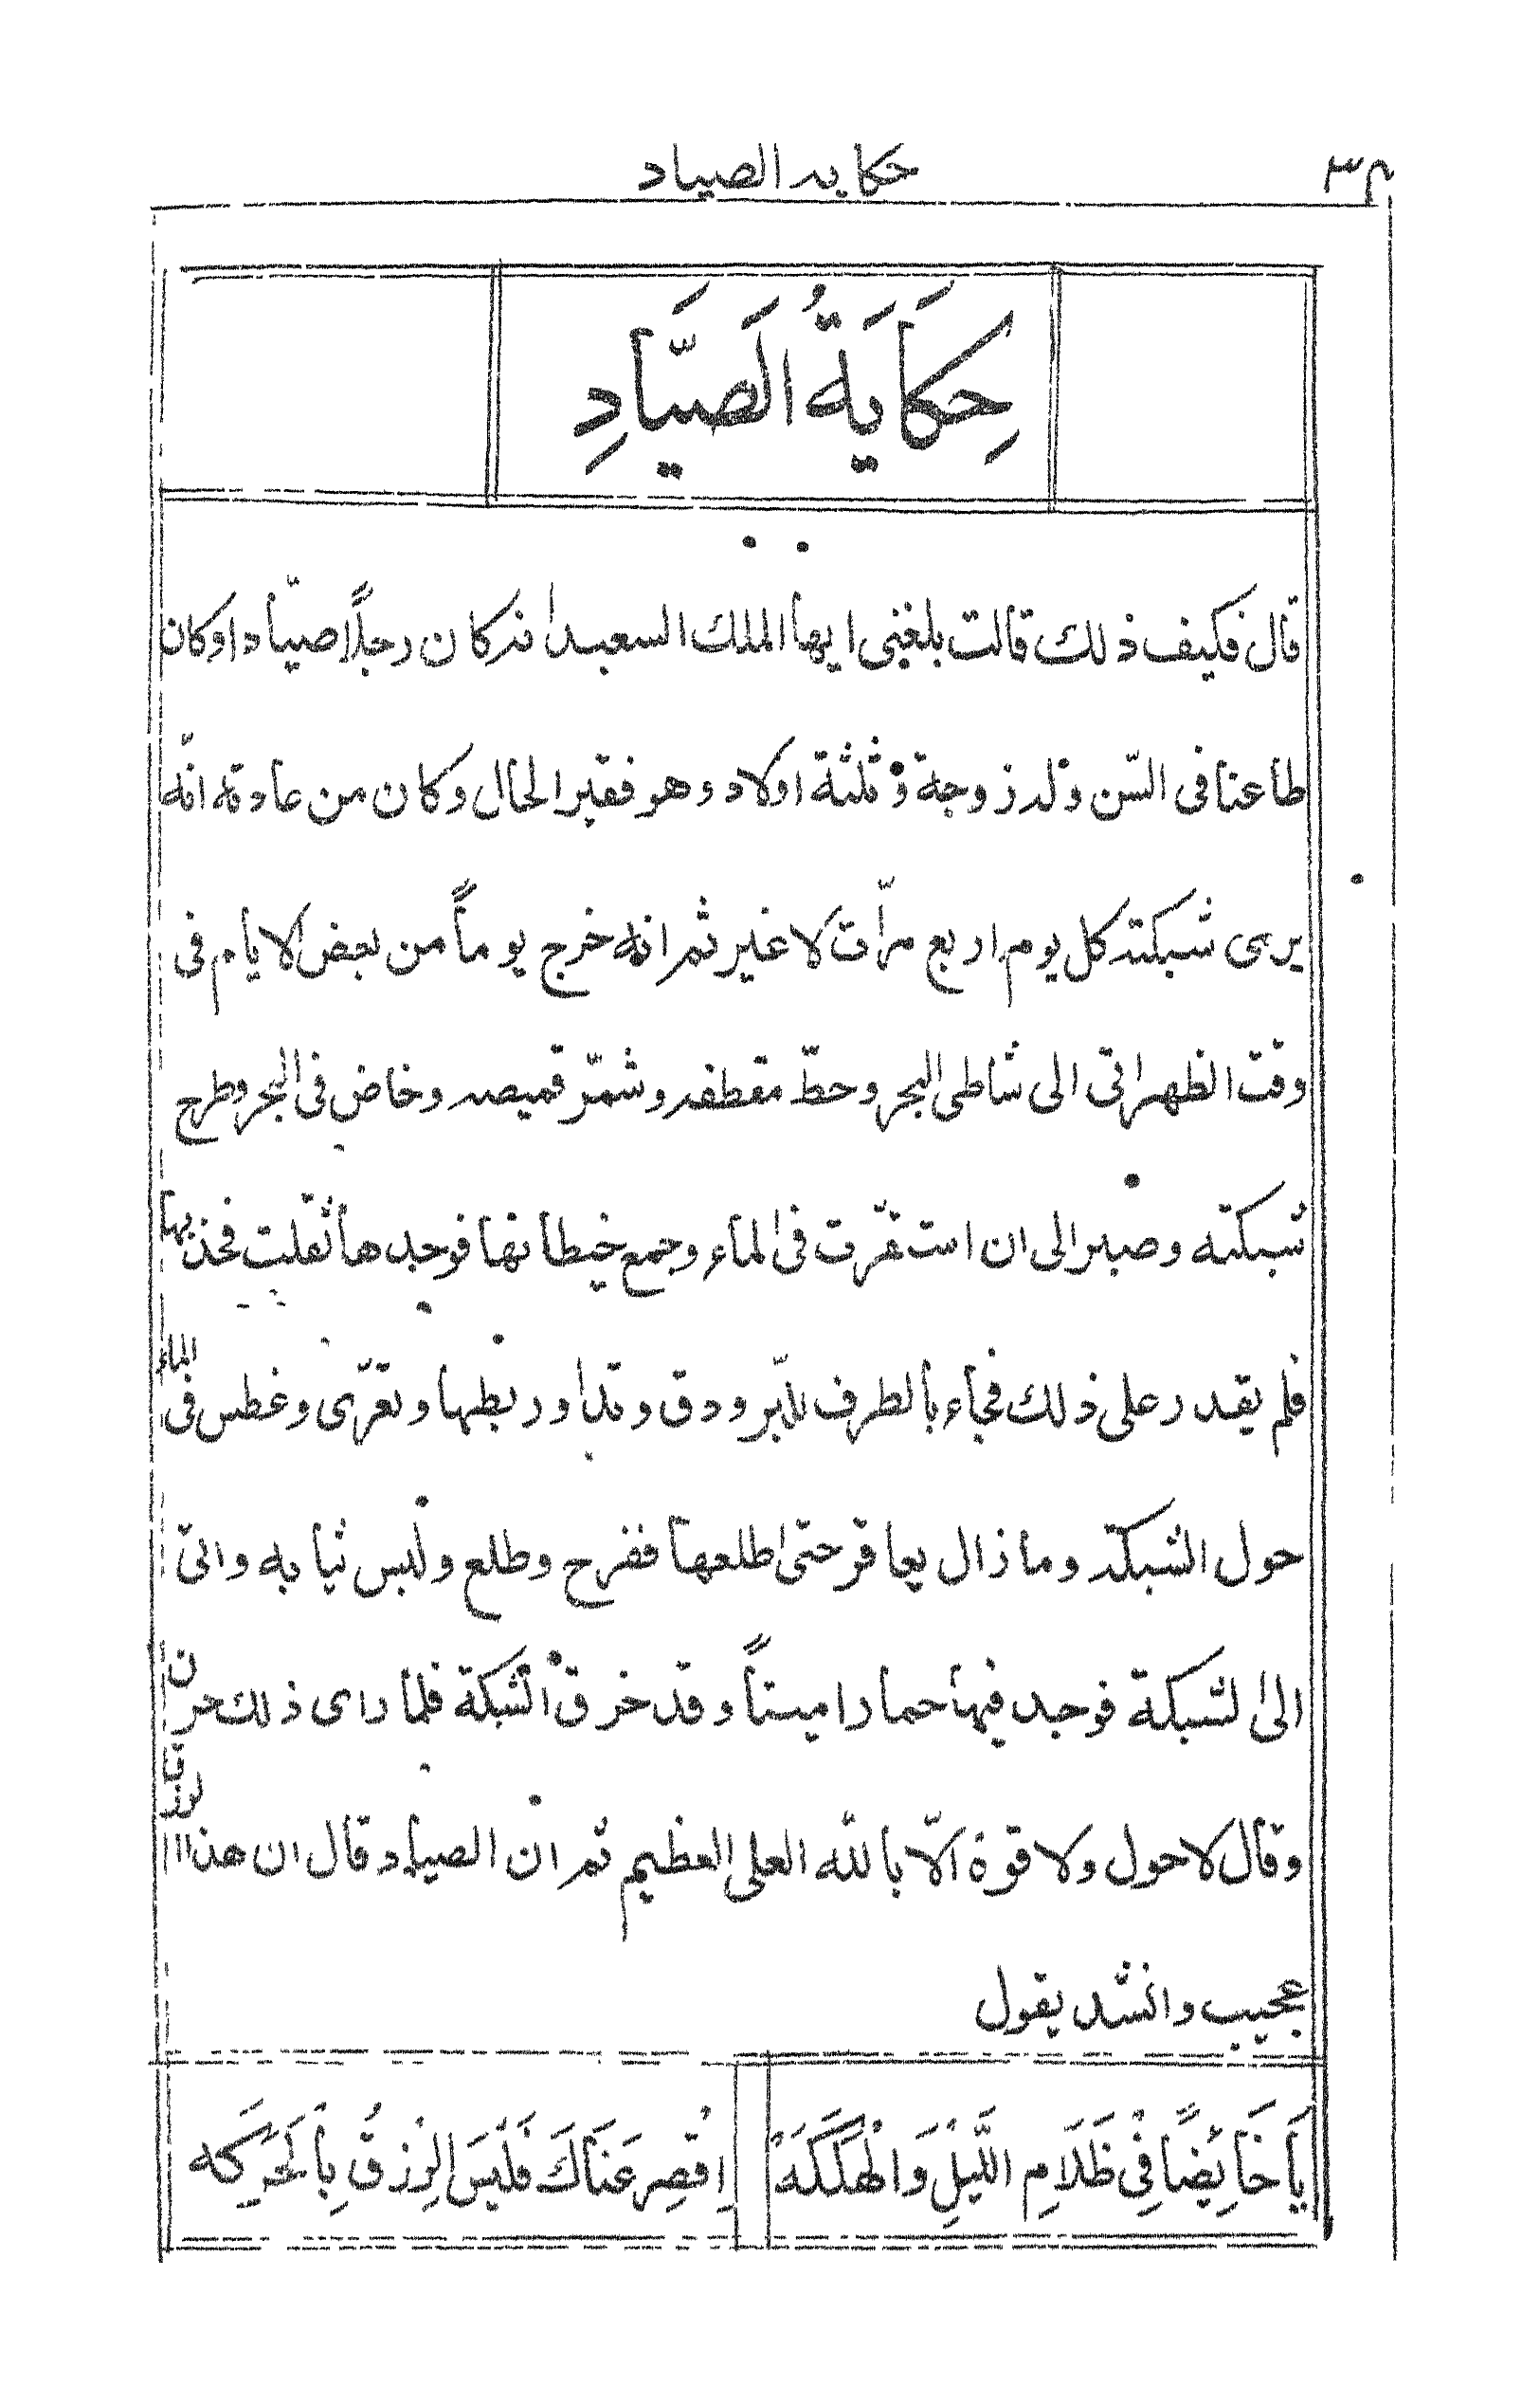 ٣٤ حكاية الصياد
حِكَايَةُ الصَيَّادِ
قال فكيف ذلك قالت بلغني ايها الملك السعيد انه كان رجلاً صيّادا وكان
طاعنا فى السّن وله زوجة وثلثة اولاد وهو فقير الحال وكان من عادته انّه
يرمى شبكته كل يوم اربع مرّات لا غير ثم انه خرج يوماً من بعض الايام فى
وقت الظهر اتى الى شاطى البحر وحطّ مقطفه وشمّر قميصه وخاض فى البحر وطرح
شبكته وصبر الى ان استقرّت فى الماء وجمع خيطانها فوجدها ثقلت فجذبها
فلم يقدر على ذلك فجاء بالطرف للبّر ودق وتدا وربطها وتعرّى وغطس فى الماء
حول الشبكة وما زال يعافر حتى اطلعها ففرح وطلع ولبس ثيابه واتىّ
الى الشبكة فوجد فيها حمارا ميتاً وقد خرق الشبكة فلما راى ذلك حزن
وقال لا حول ولا قوة الّا بالله العلى العظيم ثم ان الصياد قال ان هذا الرزق
عجيب وانشد يقول
يَا خَائِضًا فِىْ ظَلَامِ اللَّيْلِ وَالْهَلَكَهْ اِقْصِرْ عَنَاكَ فَلَيْسَ الرِزْقُ بِالحَرَكَه